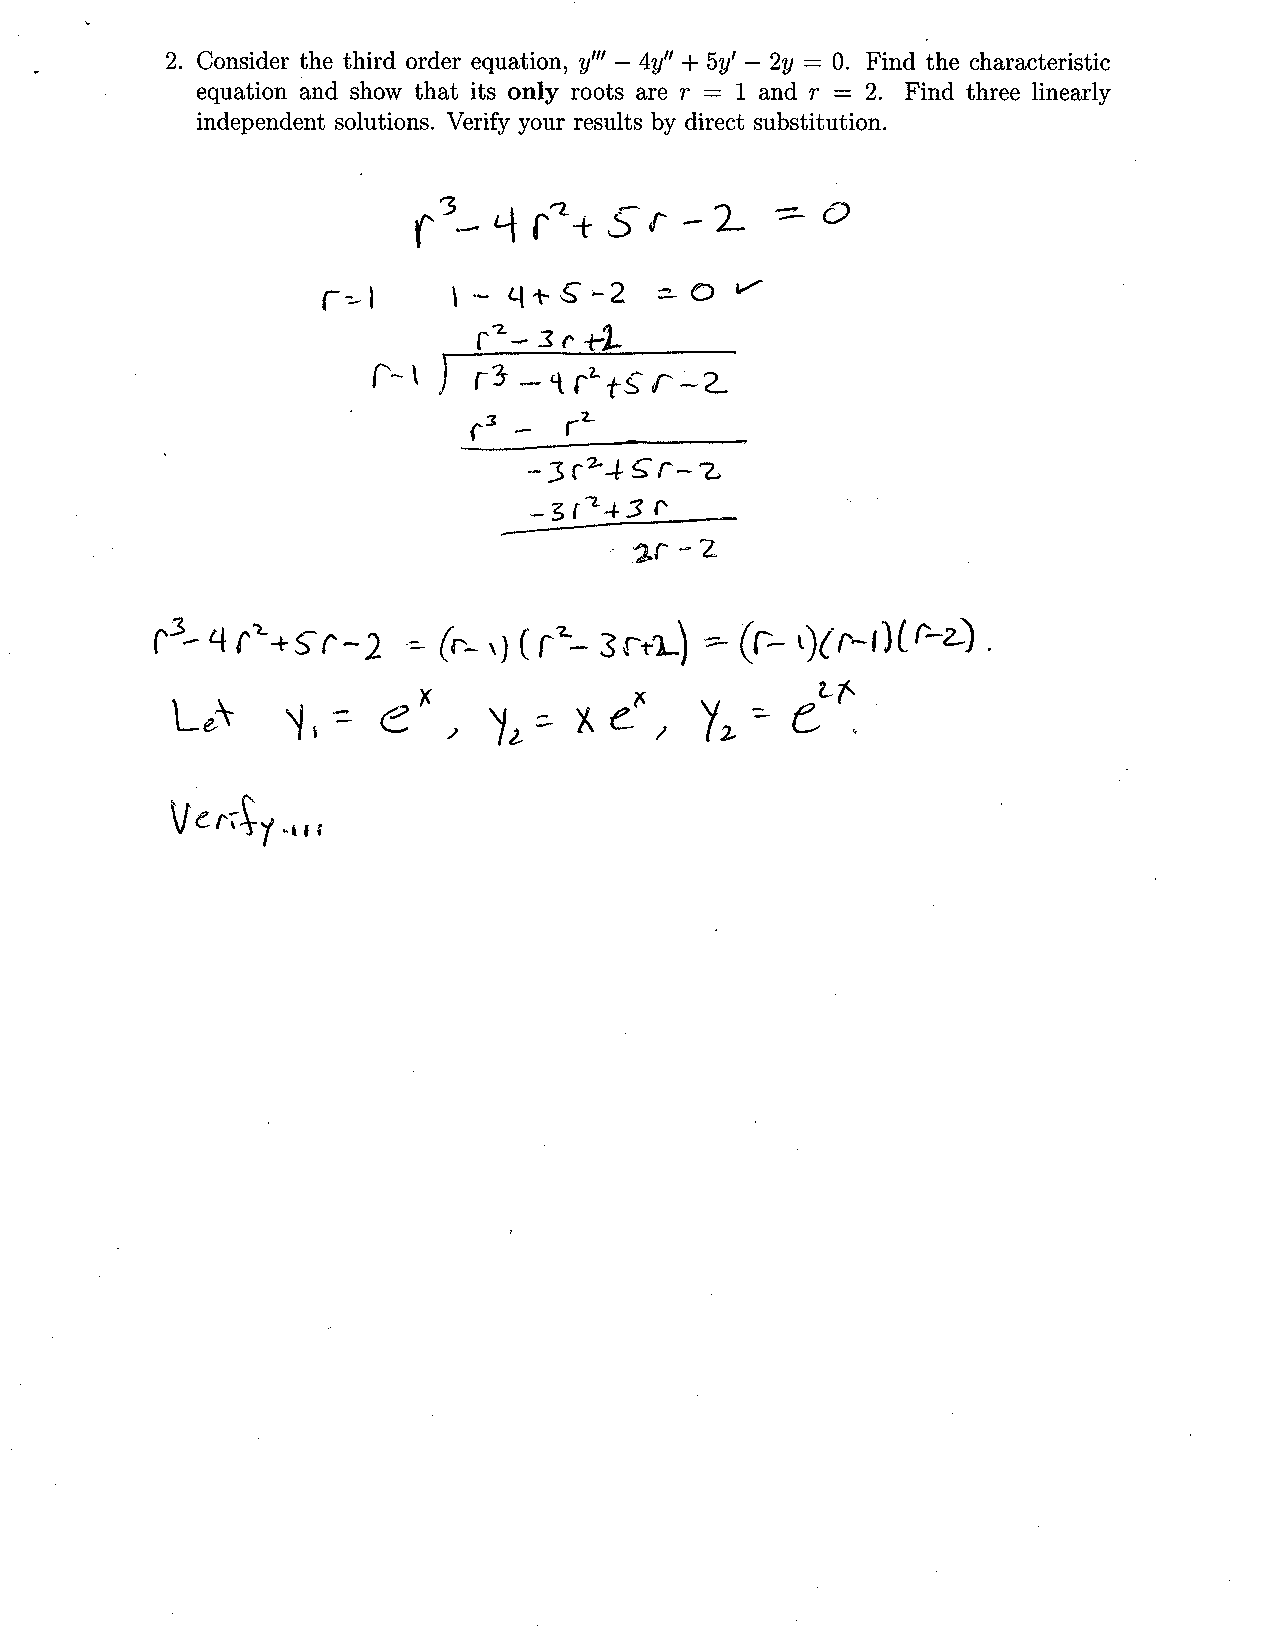 2. Consider the third order equation, y''' − 4y'' + 5y' − 2y = 0. Find the characteristic
equation and show that its only roots are r = 1 and r = 2. Find three linearly
independent solutions. Verify your results by direct substitution.
r³ − 4r² + 5r − 2 = 0
r=1 1 − 4 + 5 − 2 = 0 ✓
r² − 3r + 2
r−1 ) r³ − 4r² + 5r − 2
r³ − r²
−3r² + 5r − 2
−3r² + 3r
2r − 2
r³ − 4r² + 5r − 2 = (r−1)(r² − 3r + 2) = (r−1)(r−1)(r−2).
Let y₁ = eˣ, y₂ = xeˣ, y₂ = e²ˣ.
Verify....